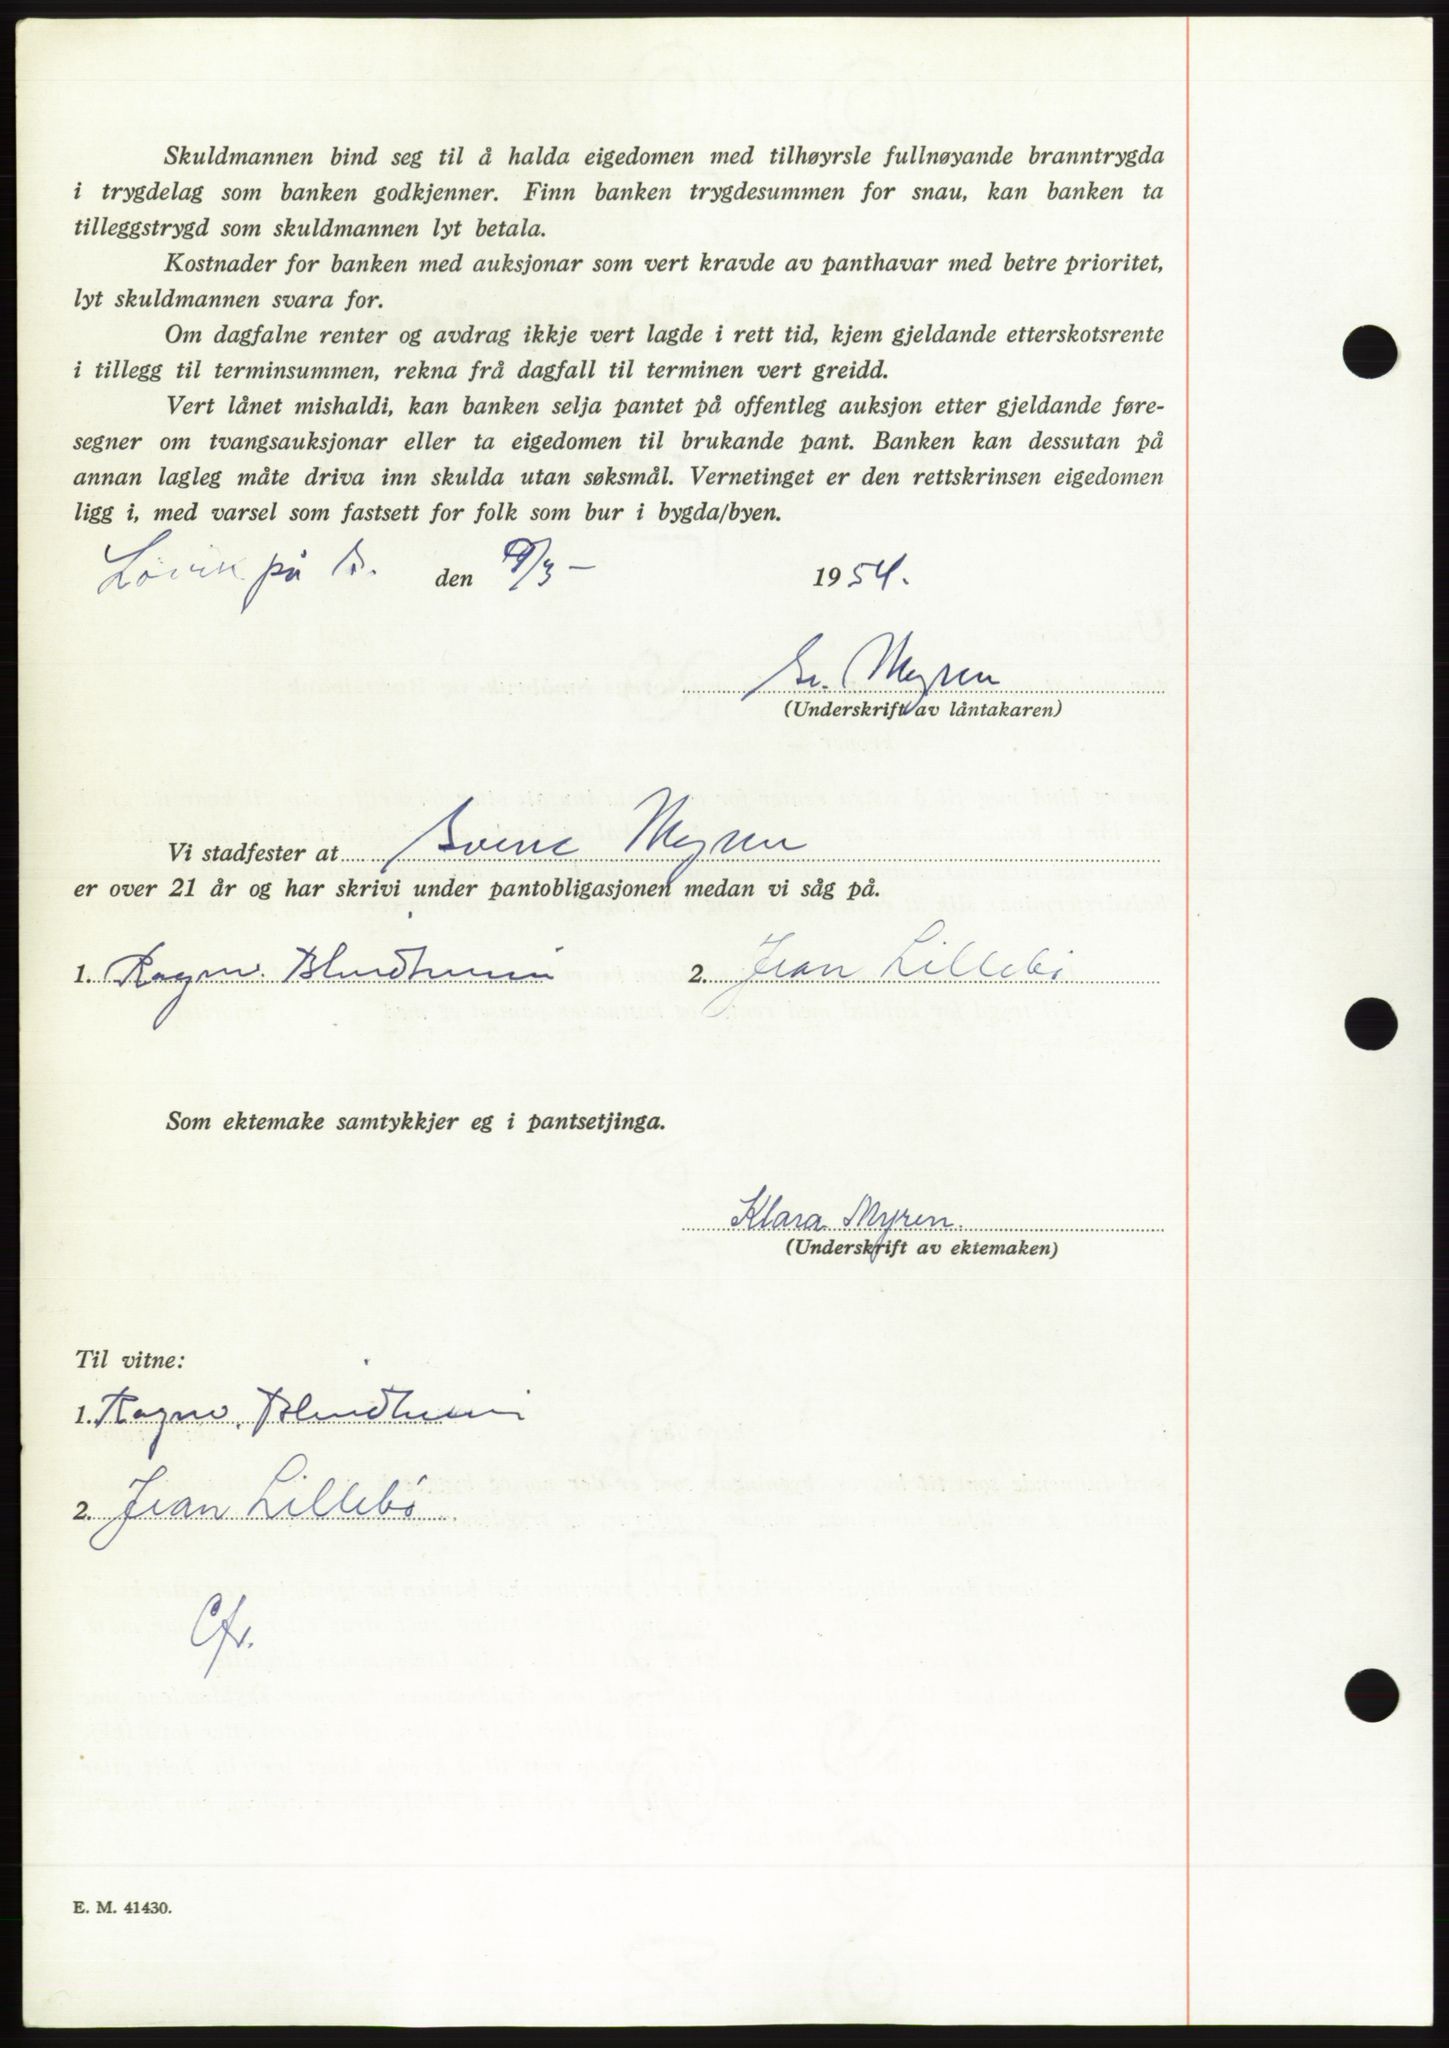 Skuldmannen bind seg til å halda eigedomen med tilhøyrsle fullnøyande branntrygda
i trygdelag som banken godkjenner. Finn banken trygdesummen for snau, kan banken ta
tilleggstrygd som skuldmannen lyt betala.
Kostnader for banken med auksjonar som vert kravde av panthavar med betre prioritet,
lyt skuldmannen svara for.
Om dagfalne renter og avdrag ikkje vert lagde i rett tid, kjem gjeldande etterskotsrente
i tillegg til terminsummen, rekna frå dagfall til terminen vert greidd.
Vert lånet mishaldi, kan banken selja pantet på offentleg auksjon etter gjeldande føre-
segner om tvangsauksjonar eller ta eigedomen til brukande pant. Banken kan dessutan på
annan lagleg måte driva inn skulda utan søksmål. Vernetinget er den rettskrinsen eigedomen
ligg i, med varsel som fastsett for folk som bur i bygda/byen.
Løvik på den 9/3 - 1954.
Myren
(Underskrift av låntakaren)
Vi stadfester at Myren
er over 21 år og har skrivi under pantobligasjonen medan vi såg på.
1. Ragnv. Blindheim 2. Jean Lillebö
Som ektemake samtykkjer eg i pantsetjinga.
Klara Myren.
(Underskrift av ektemaken)
Til vitne:
1. Ragnv. Blindheim
2. Jean Lillebö
Cfr.
E. M. 41430.